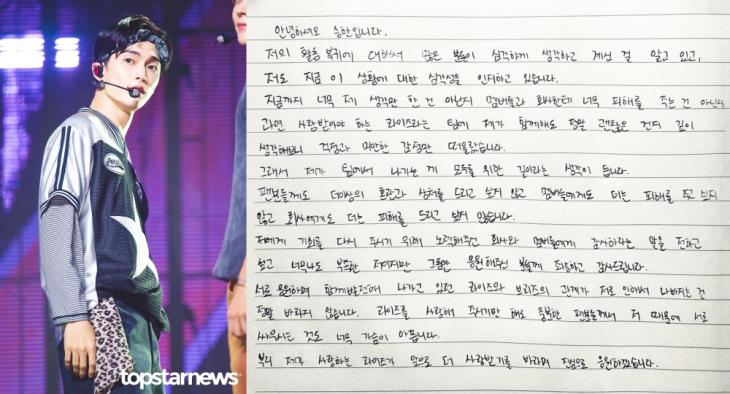 안녕하세요 승한입니다.
저의 활동 복귀에 대해서 많은 분들이 심각하게 생각하고 계신 걸 알고 있고,
저도 지금 이 상황에 대한 심각성을 인지하고 있습니다.
지금까지 너무 제 생각만 한 건 아닌지 멤버들과 회사한테 너무 피해를 주는 건 아닌지
과연 사랑받아야 하는 라이즈라는 팀에 제가 함께해도 정말 괜찮은 건지 깊이
생각해보니 걱정과 미안한 감정만 떠올랐습니다.
그래서 제가 팀에서 나가는 게 모두를 위한 길이라는 생각이 듭니다.
팬분들께도 더이상의 혼란과 상처를 드리고 싶지 않고 멤버들에게도 더는 피해를 주고 싶지
않고 회사에게도 더는 피해를 드리고 싶지 않습니다.
저에게 기회를 다시 주시기 위해 노력해주신 회사와 멤버들에게 감사하다는 말을 전하고
싶고 너무나도 부족한 저이지만 그동안 응원해주신 분들께 죄송하고 감사드립니다.
서로 응원하며 함께 발전해 나가고 있던 라이즈와 브리즈의 관계가 저로 인해서 나빠지는 건
정말 바라지 않습니다. 라이즈를 사랑해 주시기만 해도 충분한 팬분들께서 저 때문에 서로
싸우시는 것도 너무 가슴이 아픕니다.
부디 제가 사랑하는 라이즈가 앞으로 더 사랑받기를 바라며 진심으로 응원하겠습니다.
topstarnews